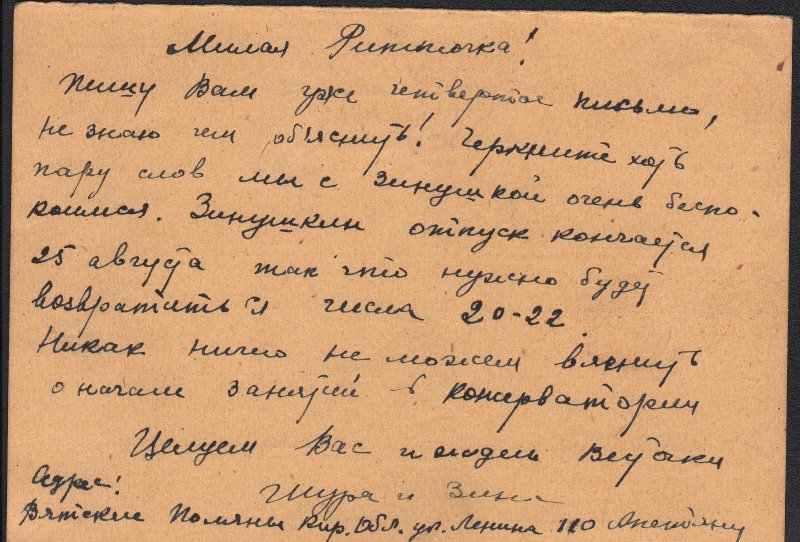 Милая Риточка!
пишу Вам уже четвертое письмо,
не знаю чем объяснить! Черкните хоть
пару слов мы с Зинушкой очень беспо-
коимся. Зинушкин отпуск кончается
25 августа так что нужно будет
возвратиться числа 20-22.
Никак ничего не можем
о начале занятий в консерватории
Целуем Вас и ждем Весточки
Адрес!
Шура и Зина
Вятские Поляны Кир. Обл. ул. Ленина 110